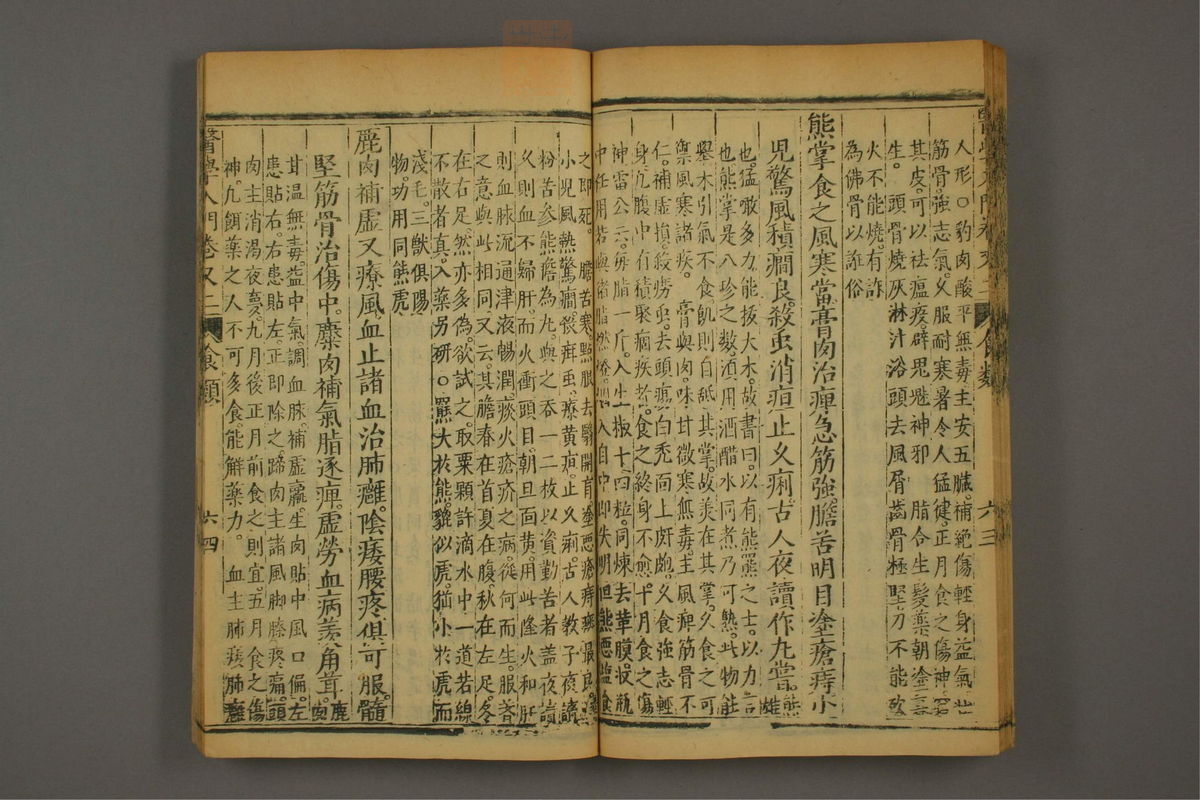 醫學入門卷又二 食類 六三
人形○豹肉酸平無毒主安五臟補絕傷輕身益氣壯
筋骨強志氣久服耐寒暑令人猛健正月食之傷神
其皮可以祛瘟疫辟鬼魅神邪 脂合生髮藥朝塗
生。頭骨燒灰淋汁浴頭去風屑齒骨極堅刀不能砍
火不能燒有詐
為佛骨以誑俗
熊掌食之風寒當膏肉治痺急筋強膽苦明目塗瘡痔小
兒驚風積癇良殺虫消疸止久痢古人夜讀作丸嘗熊雄
也猛敢多力能拔大木故書曰以有熊羆之士以力言
也熊掌是八珍之數須用酒醋水同煮乃可熟此物能
舉木引氣不食飢則自舐其掌故美在其掌久食之可
禦風寒諸疾 膏與肉味甘微寒無毒主風痺筋骨不
仁補虛損殺癆虫去頭瘍白禿面上皯皰久食強志輕
身久腹中有積聚痼疾者食之終身不愈十月食之傷
神雷公云每脂一斤入生椒十四粒同煉去革膜收瓶
中任用若與猪脂然燈烟入目中即失明但熊惡鹽食
之即死。 膽苦寒點眼去翳開盲塗惡瘡痔瘺最良
小兒風熱驚癇殺疳虫療黃疸止久痢古人教子夜讀
粉苦參熊膽為丸與之吞一二枚以資勤苦者蓋夜讀
久則血不歸肝而火衝頭目朝旦面黃用此降火和肝
則血脉流通津液暢潤痰火瘡疥之病從何而生服者
之意與此相同又云其膽春在首夏在腹秋在左足冬
在右足然亦多偽欲試之取粟顆許滴水中一道若線
不散者真入藥另研○羆大於熊貔似虎猶小於虎而
淺毛三獸俱陽
物功用同熊虎
麂肉補虛又療風血止諸血治肺癰陰痿腰疼俱可服髓
堅筋骨治傷中麋肉補氣脂逐痺虛勞血病羨角茸鹿肉
甘溫無毒益中氣調血脉補虛羸生肉貼中風口偏左
患貼右右患貼左正即除之蹄肉主諸風脚膝疼痛頭
肉主消渴夜夢九月後正月前食之則宜五月食之傷
神凡餌藥之人不可多食能解藥力。 血主肺痿肺癰
醫學入門卷又二 食類 六四